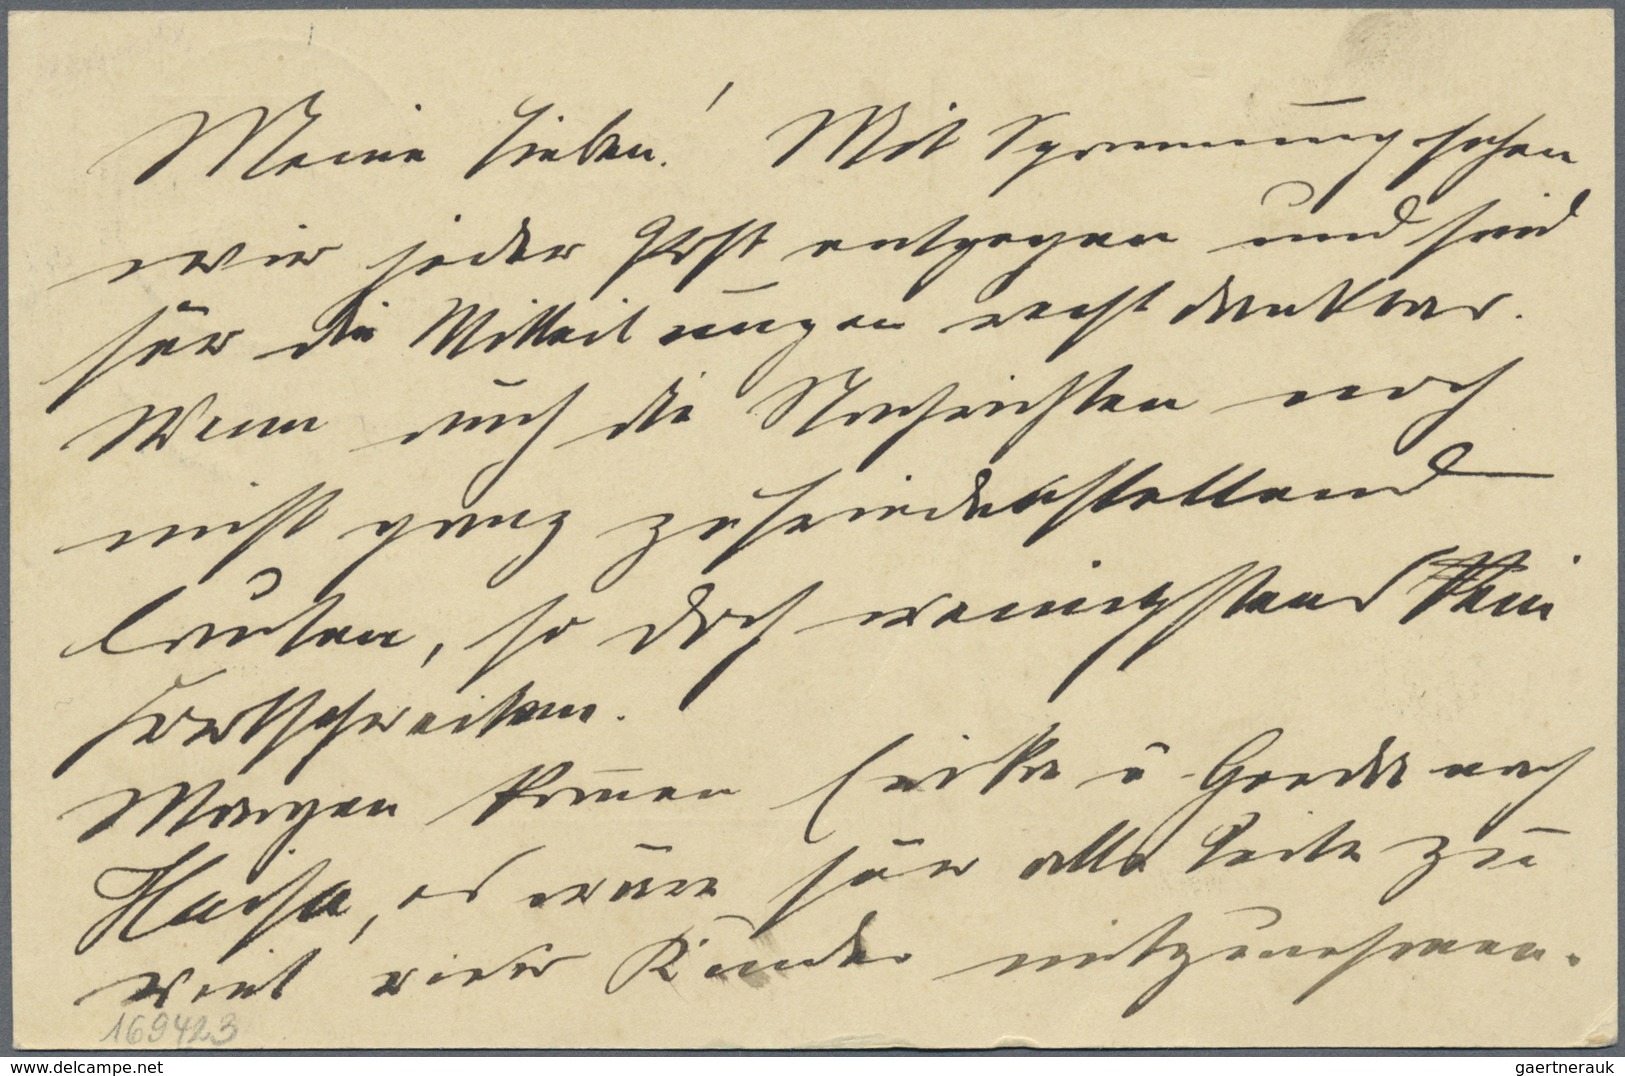 Meine Lieben! Mit Spannung sehen
wir jeder Post entgegen und sind
für die Mitteilungen recht dankbar.
Wenn auch die Nachrichten noch
nicht ganz zufriedenstellend
lauten, so doch wenigstens kein
Fortschreiten.
Morgen kommen u. nach
es wäre für alle Teile zu
viel vier Kinder mitzunehmen.
169423
www.delcampe.net
gaertnerauk